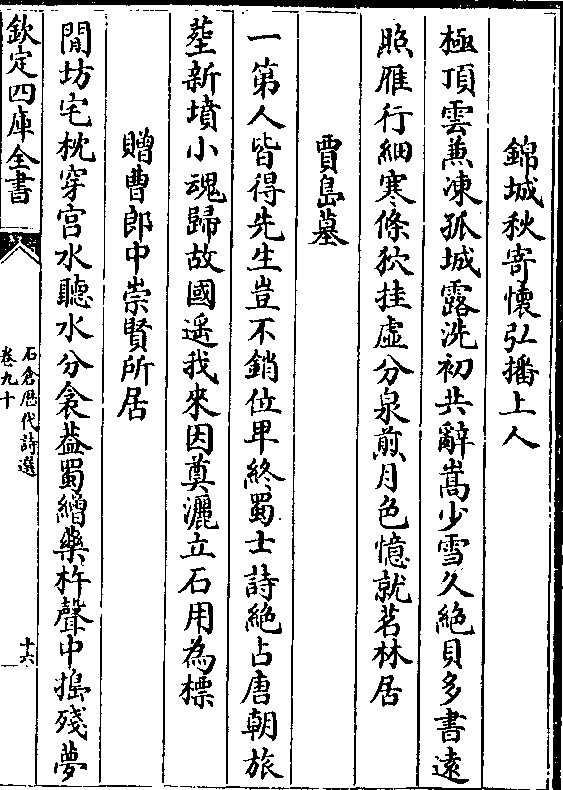 錦城秋寄懷弘播上人
極頂雲兼凍孤城露洗初共辭嵩少雪久絶貝多書遠
照雁行細寒條狖挂虛分泉煎月色憶就茗林居
賈島墓
一第人皆得先生豈不銷位卑終蜀士詩絶占唐朝旅
塟新墳小魂歸故國遥我來因奠灑立石用為標
贈曹郎中崇賢所居
閒坊宅枕穿宫水聽水分衾葢蜀繒藥杵聲中搗殘夢
欽定四庫全書
石倉歴代詩選
卷九十
十六